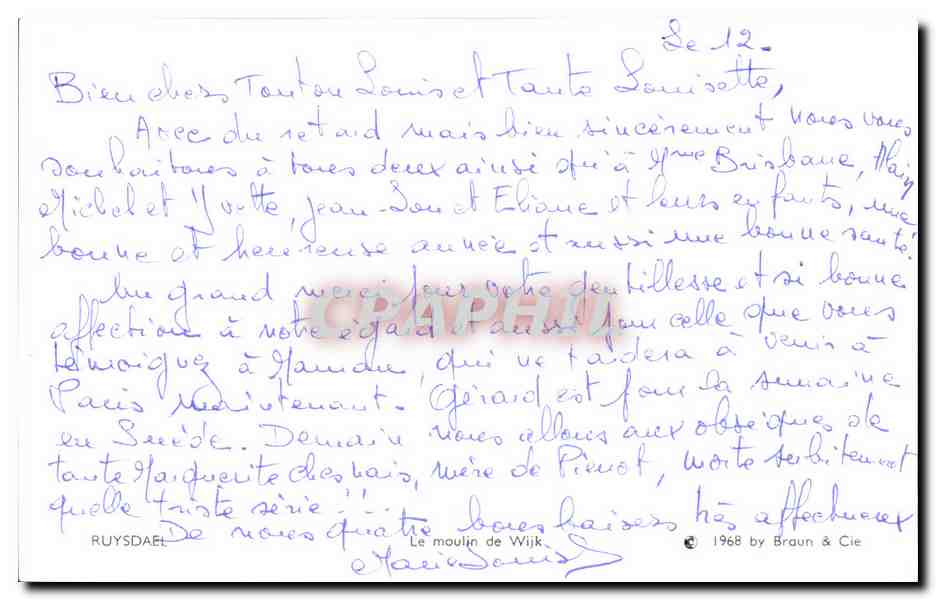 Le 12.
Bien chers Tonton Louis et Tante Louisette,
Avec du retard mais bien sincèrement nous vous
souhaitons à tous deux ainsi qu'à Mme Brisbane, Alain
Michel et Yvette, Jean-Lou et Eliane et leurs enfants, une
bonne et heureuse année et aussi une bonne santé.
Un grand merci pour votre gentillesse et si bonne
affection à notre égard et aussi pour celle que vous
témoignez à Maman, qui ne tardera à venir à
Paris maintenant. Gérard est pour la semaine
en Suède. Demain nous allons aux obsèques de
tante Marguerite Chesnais, mère de Pierrot, morte subitement
quelle triste série !!...
De nous quatre bons baisers très affectueux
Marie-Louise
RUYSDAEL Le moulin de Wijk © 1968 by Braun & Cie
CPAPHIL